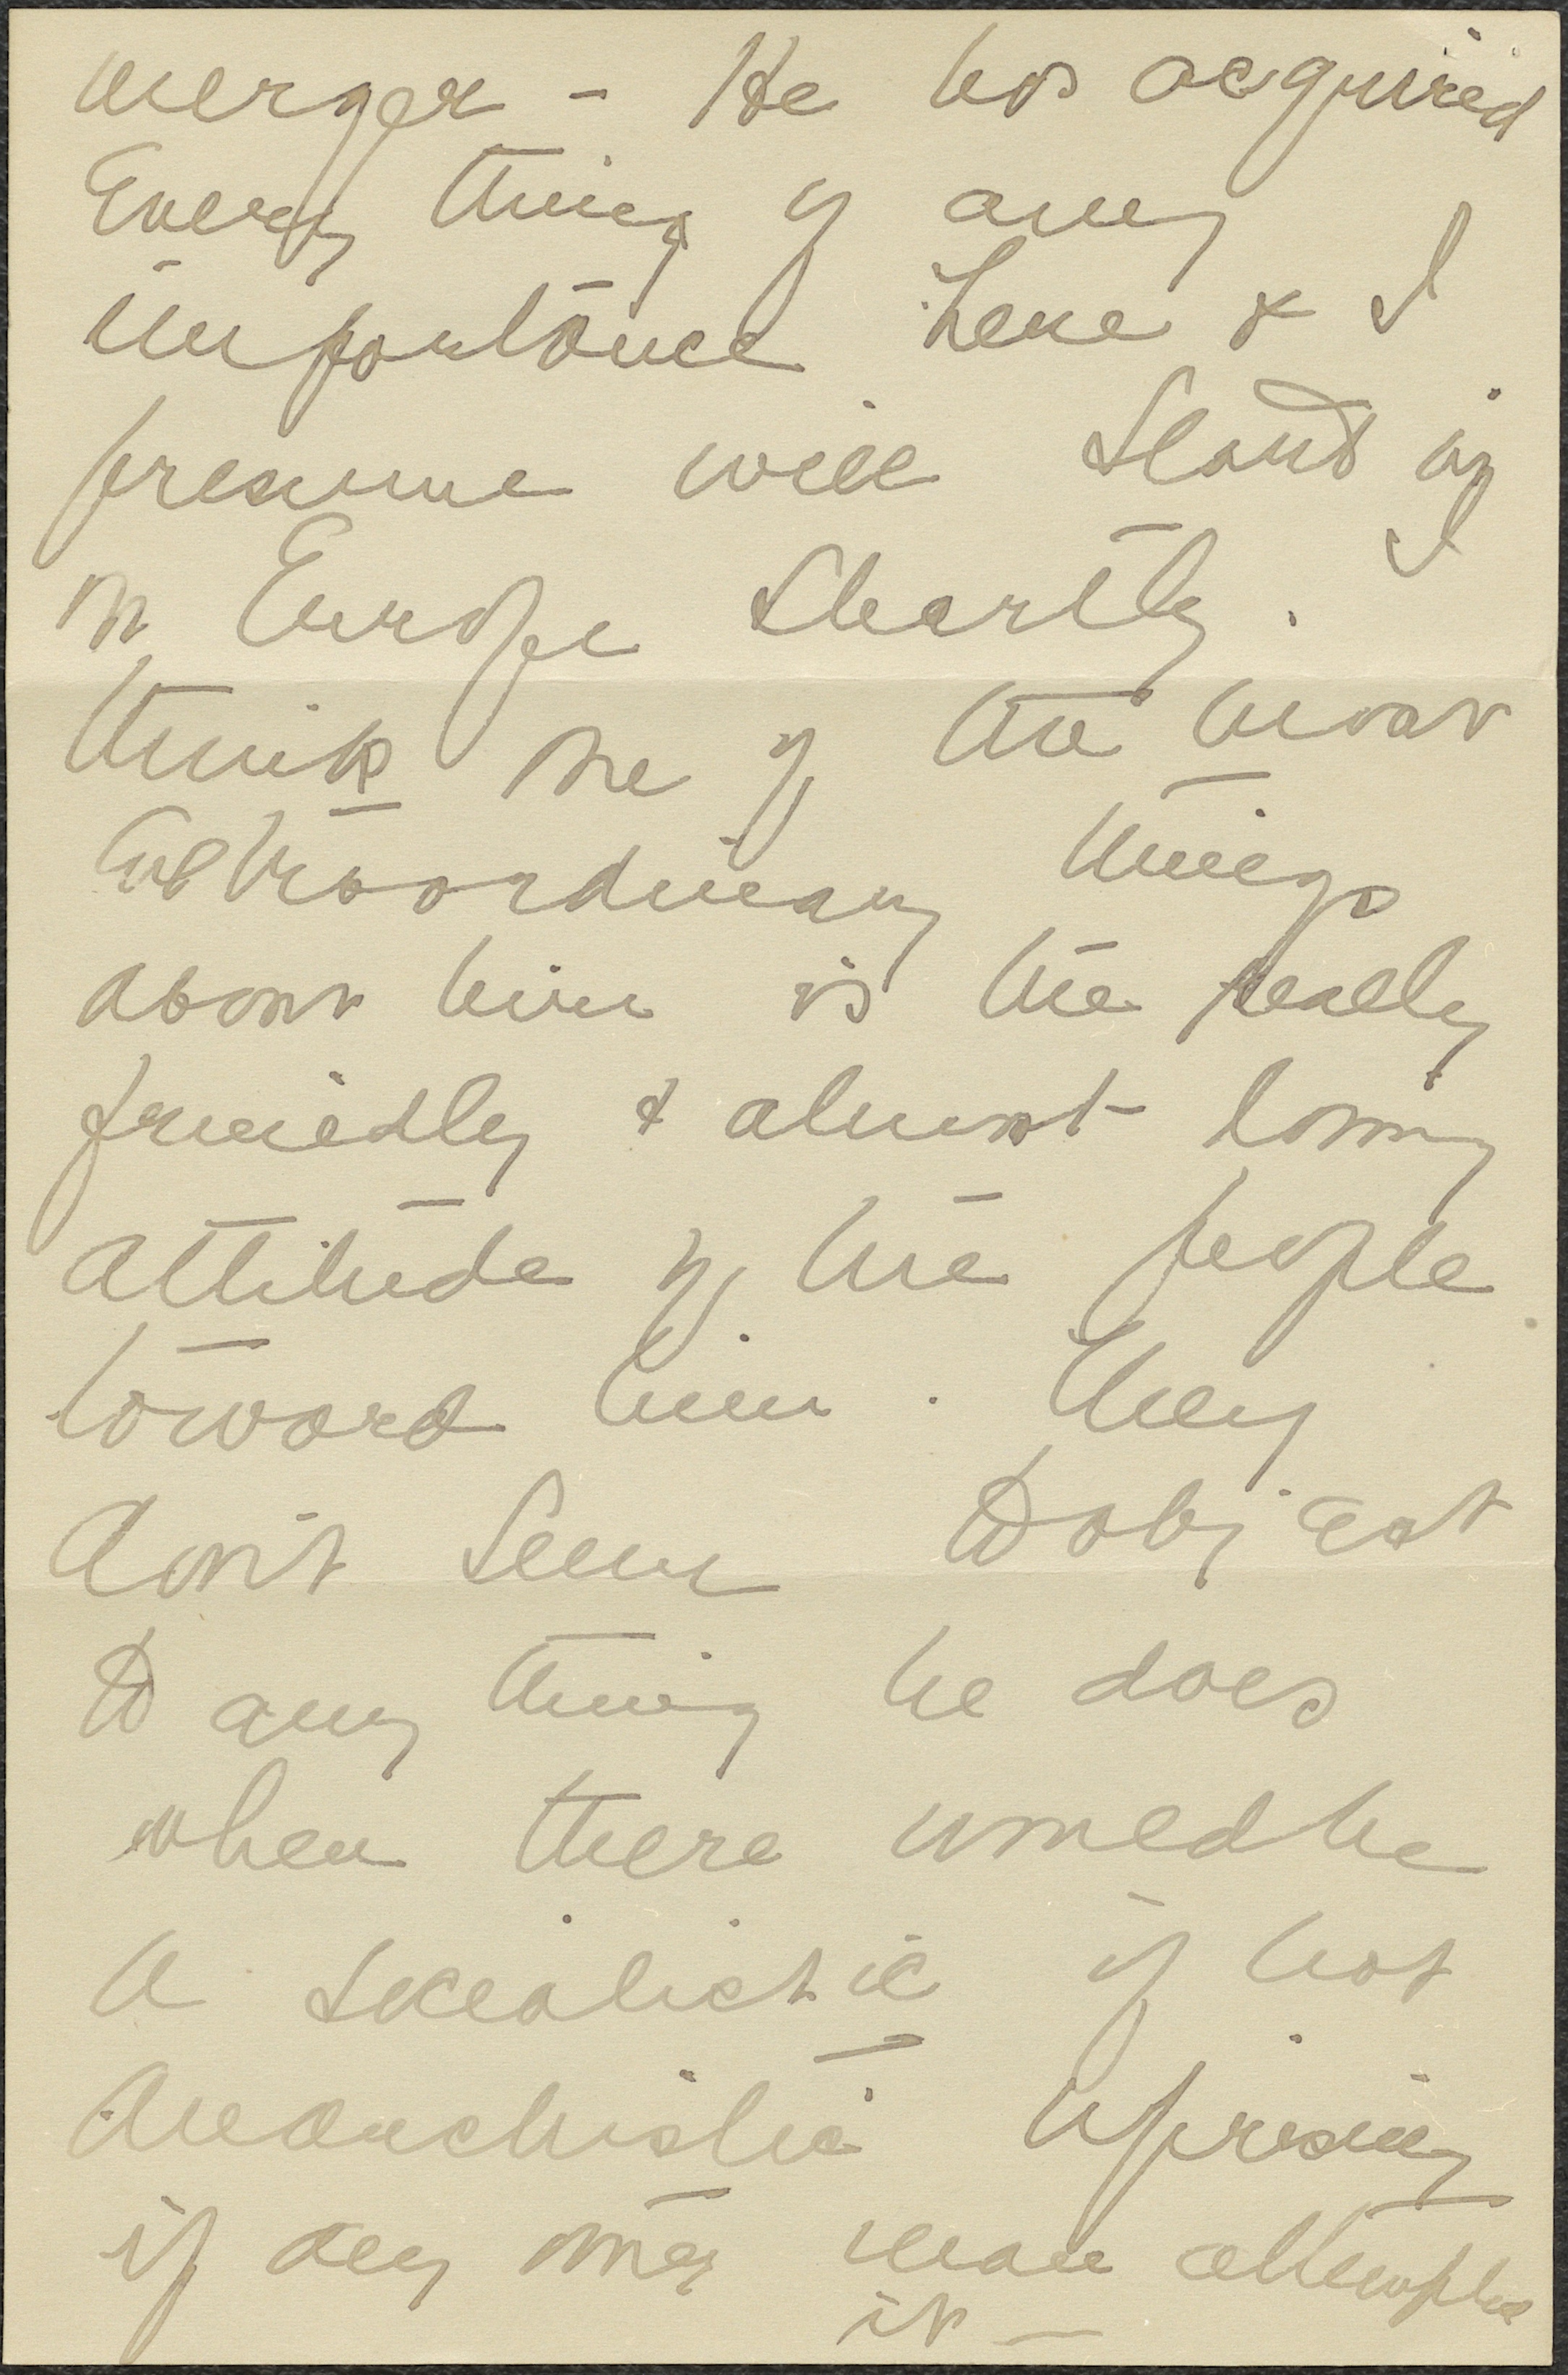 merger - He has acquired
Every thing of any
importance here & I
presume will start in
on Europe shortly. I
think one of the most
Extraordinary things
about him is the really
friendly & almost loving
attitude of the people
toward him. They
don't seem to object
to any thing he does
when there would be
a socialistic if not
Anarchistic uprising
if any other man attempted
it -